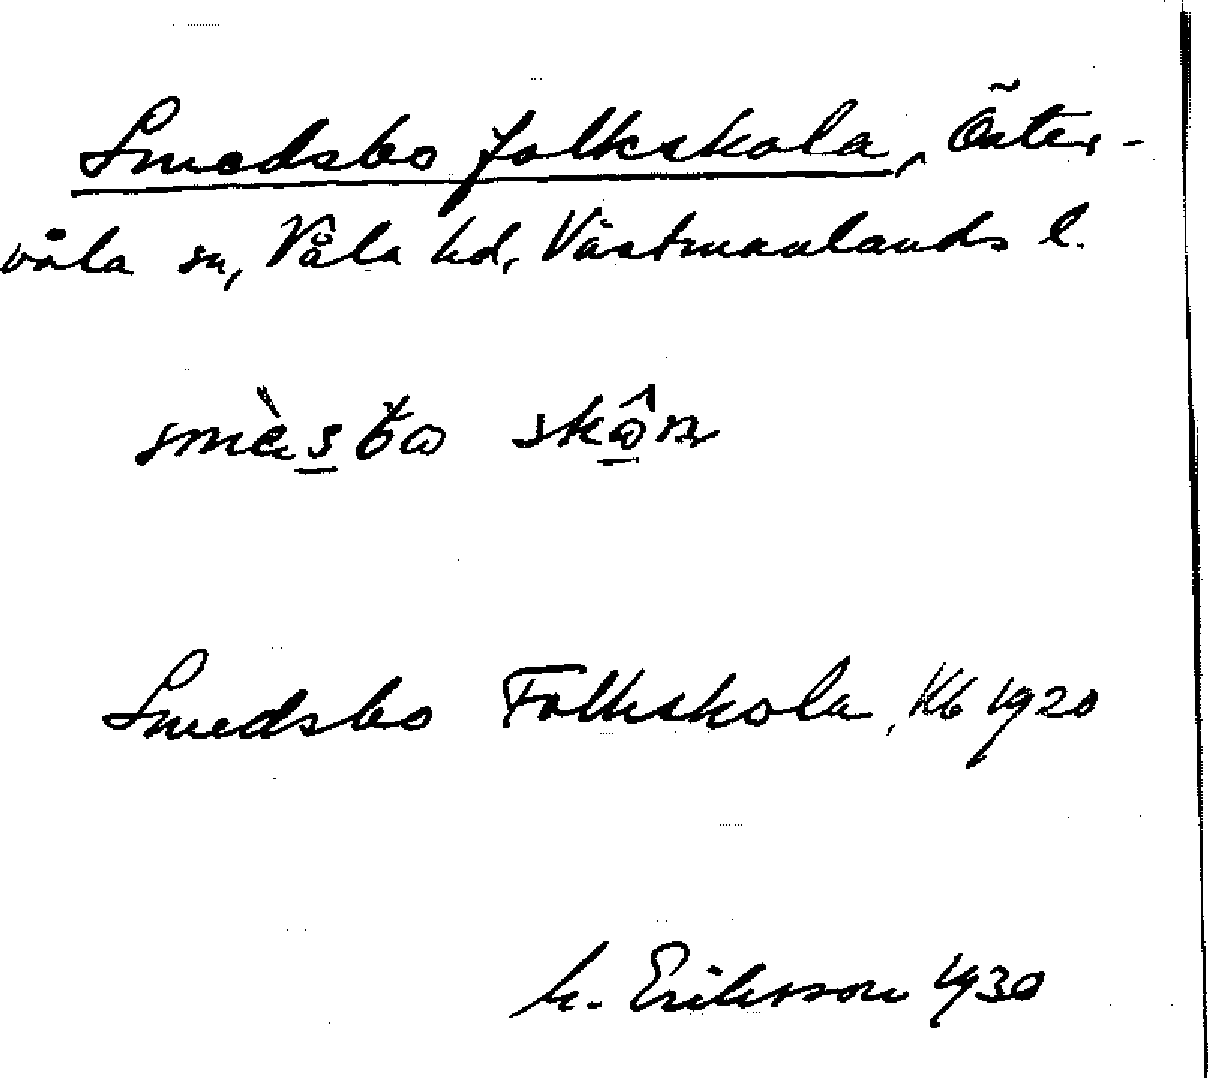 Smedsbo folkskola, Öster-
våla sn, Våla hd, Västmanlands l.
Smedsbo Folkskola, Kb 1920
M. Eriksson 1930